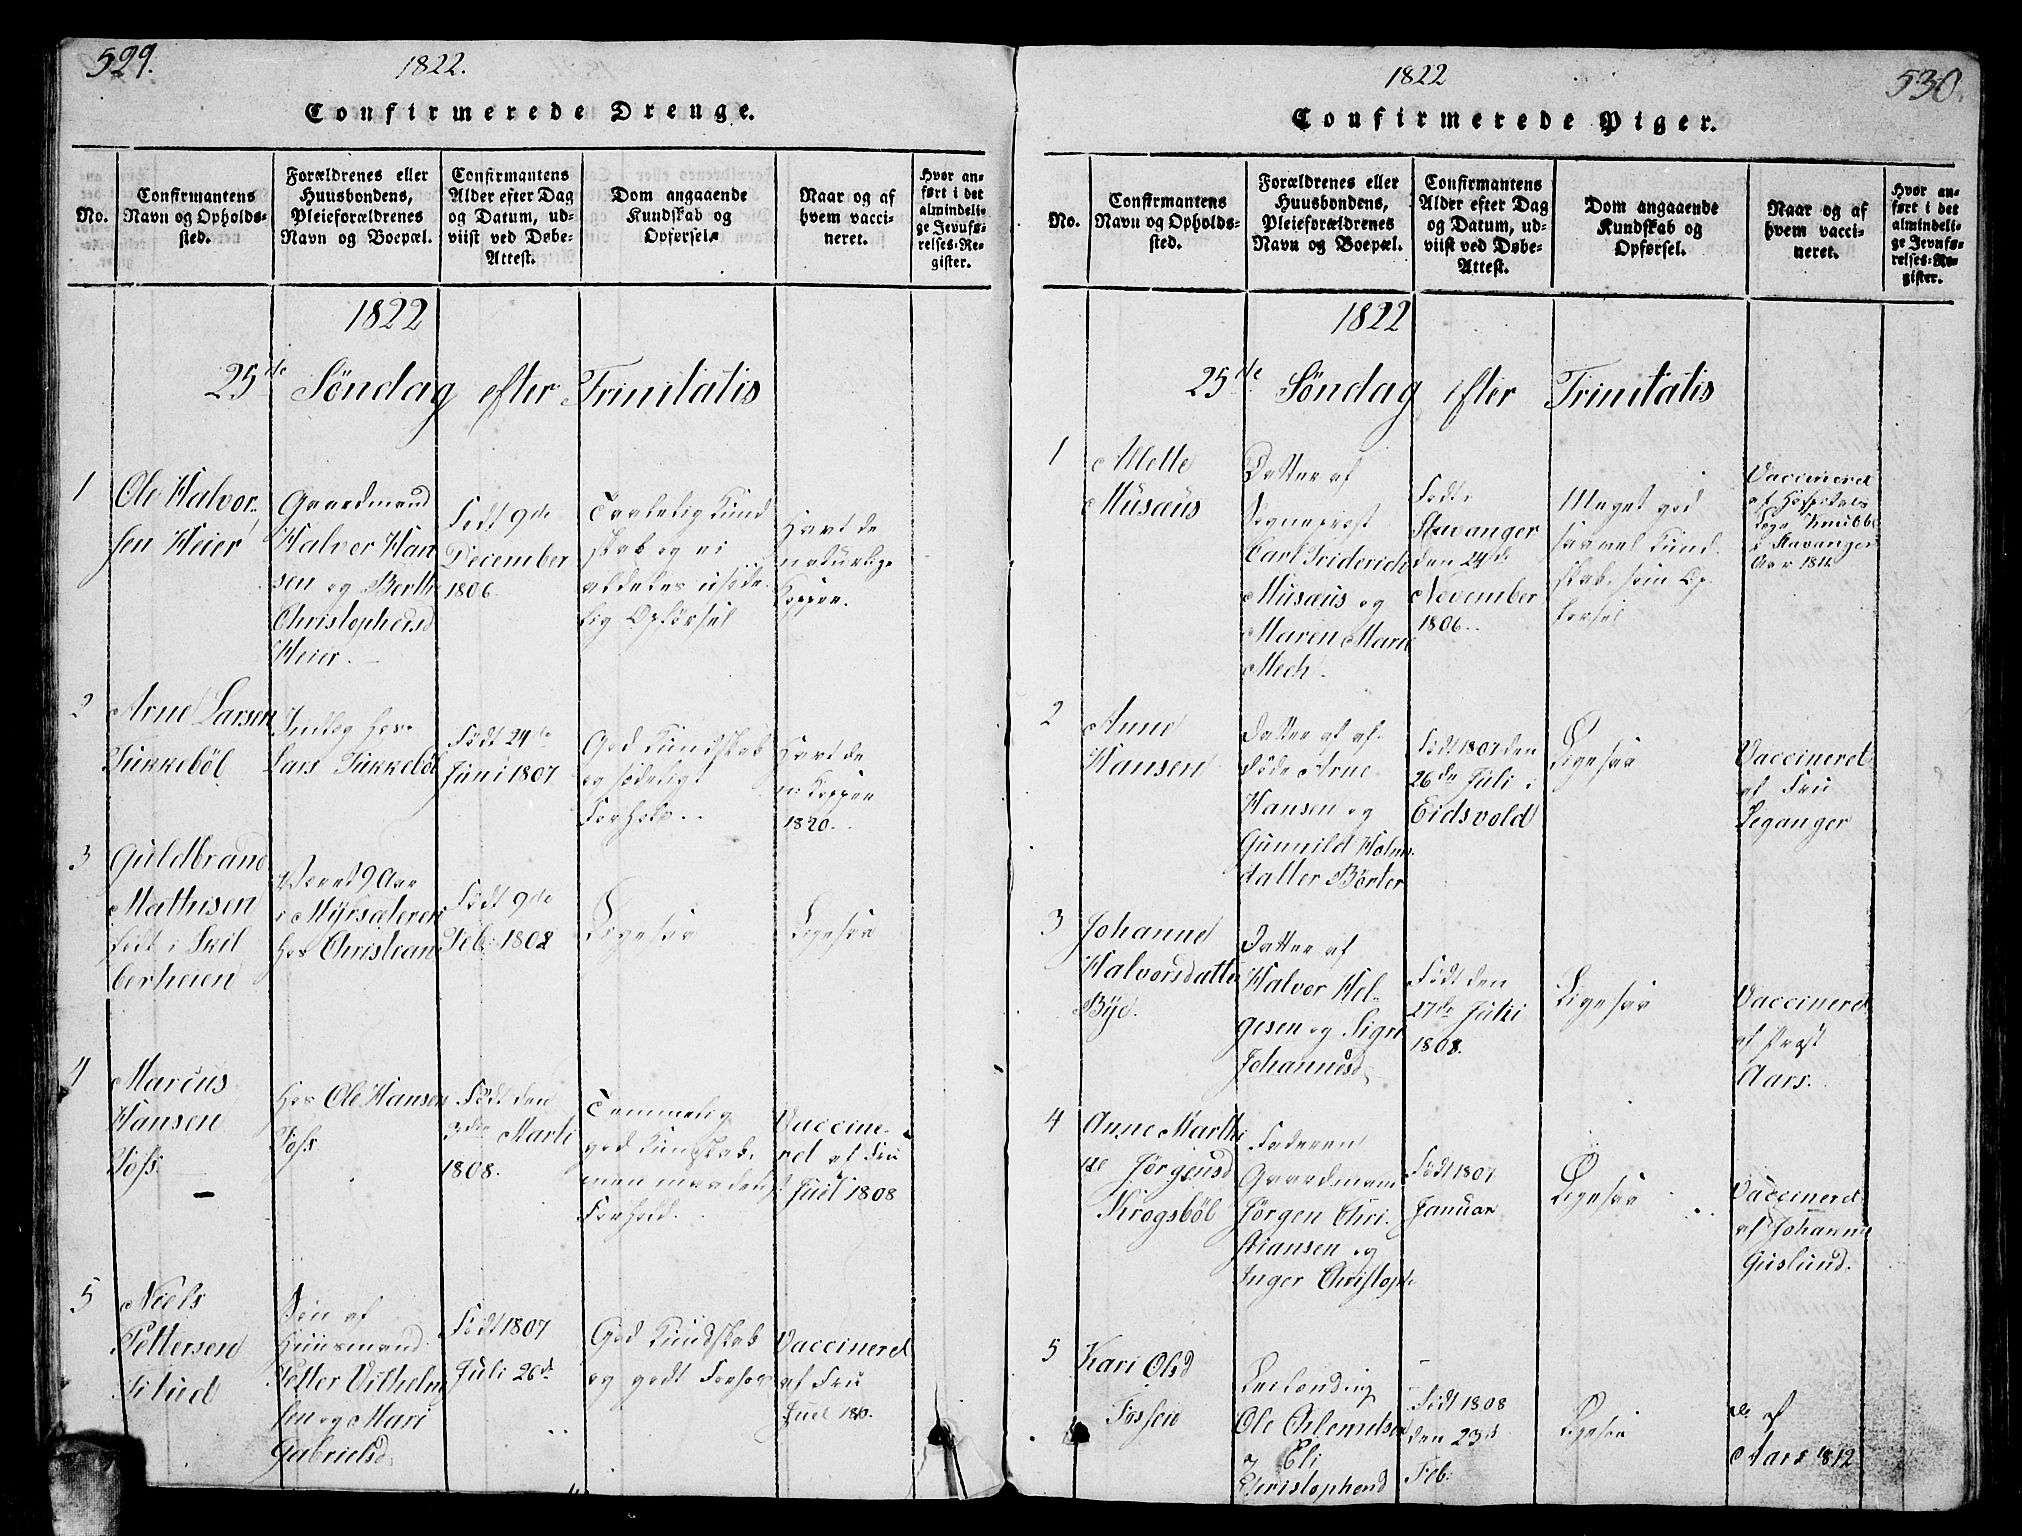 529.
1822.
Confirmerede Drenge.
No.
Confirmantens
Navn og Opholds-
sted.
Forældrenes eller
Huusbondens,
Pleieforældrenes
Navn og Boepæl.
Confirmantens
Alder efter Dag
og Datum, ud-
viist ved Døbe-
Attest.
Dom angaaende
Kundskab og
Opførsel.
Naar og af
hvem vacci-
neret.
Hvor an-
ført i det
almindeli-
ge Jevnfø-
relses-Re-
gister.
1822
25de Söndag efter Trinitatis
1
Ole Halvor-
sen Heier
Gaardmand
Halver Han
sen og Berthe
Christophersd
Heier.
Födt 9de
December
1806.
Taalelig Kund
skab og ei
aldeles usöde
lig Opförsel
Havt de
naturlige
Kopper.
2
Arne Larsen
Tukkeböl
Inderst hos
Lars Tukkeböl
Födt 24de
Juni 1807
God Kundskab
og södeligt
Forhold.
Havt de
n: Kopper
1820.
3
Guldbrand
Mathisen
födt i
Været 9 Aar
i Myrsæteren
hos Christian
Födt 9de
Feb: 1808
Ligesaa
Ligesaa
4
Marcus
Hansen
Foss
hos Ole Hansen
Foss
Födt den
3die Marti
1808.
Temmelig
god Kundskab,
men
Forhold.
Vaccine-
ret af Fru
Juel 1808
5
Niels
Pettersen
Situd
Sön af
Huusmand
Petter Vilhelm
sen og Mari
Gabrielsd.
Födt 1807
Juli 26de
God Kundskab
og godt Forhold
Vaccineret
af Fru
Juel
1822
530.
Confirmerede Piger.
No.
Confirmantens
Navn og Opholds-
sted.
Forældrenes eller
Huusbondens,
Pleieforældrenes
Navn og Boepæl.
Confirmantens
Alder efter Dag
og Datum, ud-
viist ved Døbe-
Attest.
Dom angaaende
Kundskab og
Opførsel.
Naar og af
hvem vacci-
neret.
Hvor an-
ført i det
almindeli-
ge Jevnfø-
relses-Re-
gister.
1822
25de Söndag efter Trinitatis
1
Mette
Musæus
Datter af
Sogneprest
Carl Friderich
Musæus og
Maren Marie
Mech.
Födt i
Stavanger
den 24de
November
1806.
Meget god
saavel Kund
skab, som Op
førsel
Vaccineret
af Hospitals
Læge
i Stavanger
Aar 1811.
2
Anne
Hansen
Datter af af-
döde Arne
Hansen og
Gunnild Holm
datter Börter
Födt 1807 den
26de Juli i
Eidsvold
Ligesaa
Vaccineret
af Fru
Leganger
3
Johanne
Halvorsdatter
Bye.
Datter af
Halvor Hel-
gesen og Sigri
Johannesd.
Födt den
27de Juli
1808.
Ligesaa
Vaccineret
af Præst
Aars.
4
Anne Marthi
ne Jörgensd
Krogsböl
Faderen
Gaardmann
Jörgen Chri-
stiansen og
Inger Christoph
Födt 1807
Januar
Ligesaa
Vaccineret
af Johanne
Guslund.
5
Kari Olsd
Fossen
Ole Erlendsen
og Eli
Christophersd
Födt 1808
den 23de
Feb:
Ligesaa
do af
Aars 1812